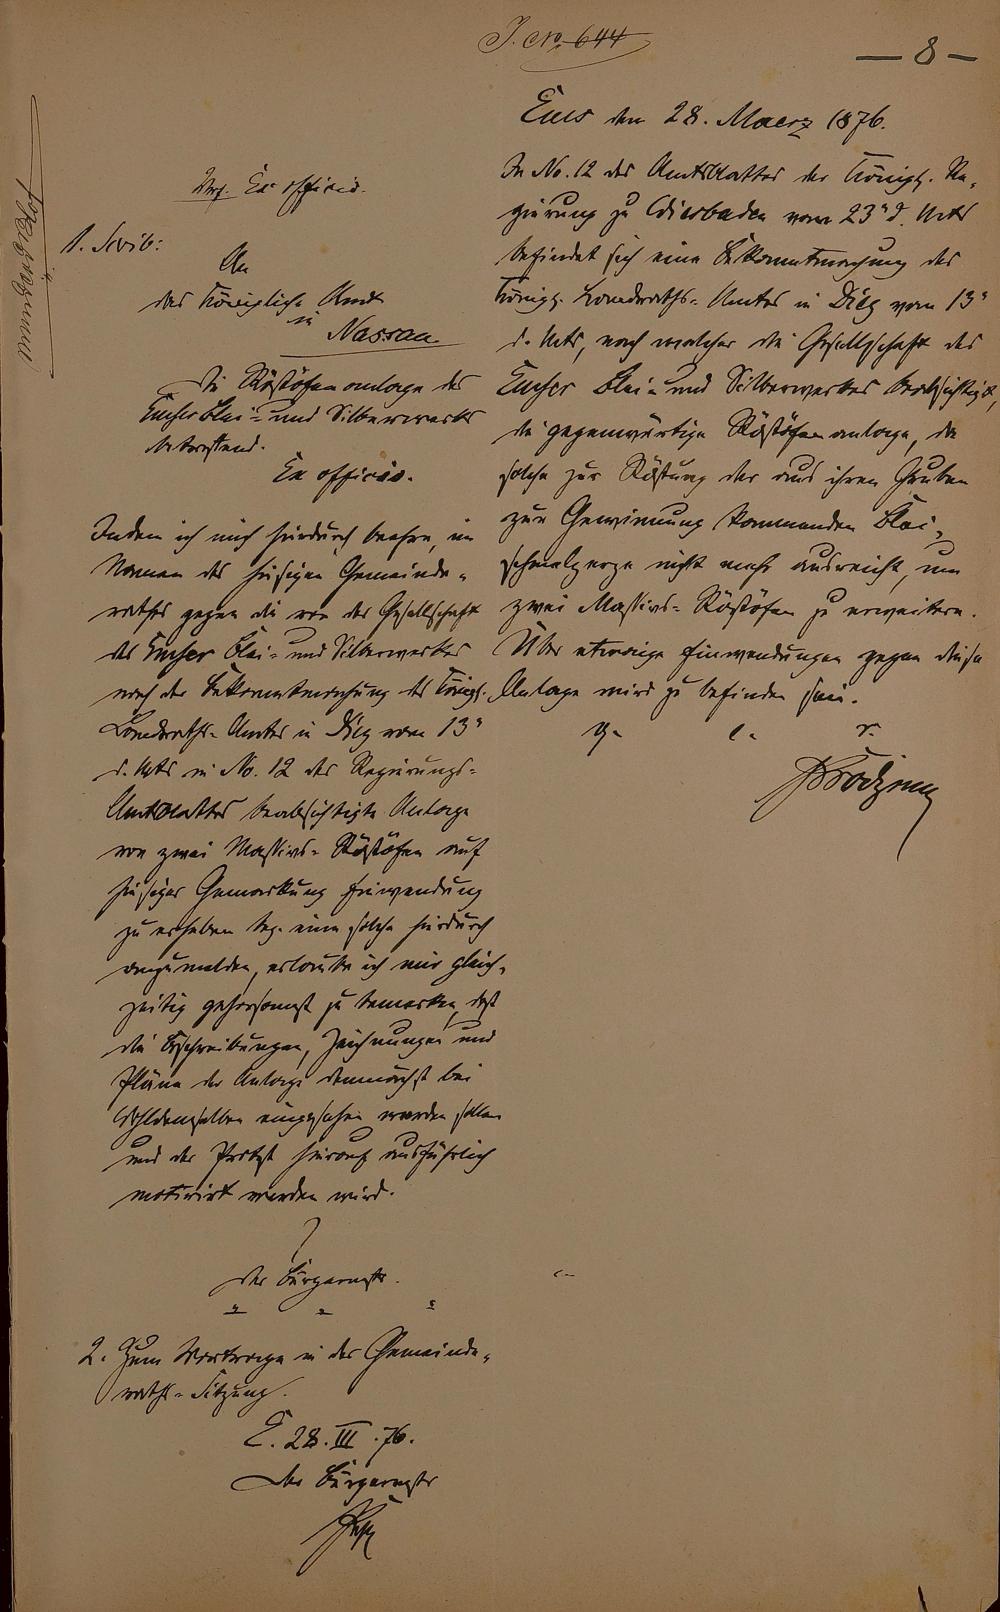 J. No. 644
— 8 —
Ems den 28. Maerz 1876.
In No. 12 des Amtsblattes der Königl. Re-
gierung zu Wiesbaden vom 23n d. Mts
befindet sich eine Bekanntmachung des
Königl. Landraths-Amtes in Diez vom 13n
d. Mts, nach welcher die Gesellschaft des
Emser Blei- und Silberwerkes beabsichtigt,
die gegenwärtige Röstöfenanlage, da
solche zur Röstung der aus ihren Gruben
zur Gewinnung kommenden Blei-
schmelzerze nicht mehr ausreicht, um
zwei Massivs-Röstöfen zu erweitern.
Über etwaige Einwendungen gegen diese
Anlage wird zu befinden sein.
V. Ex officio.
1. Scrib:
An
das Königliche Amt
in
Nassau
Die Röstöfenanlage des
Emser Blei- und Silberwerks
betreffend.
Ex officio.
Indem ich mich hierdurch beehre, im
Namen des hiesigen Gemeinde-
rathes gegen die von der Gesellschaft
des Emser Blei- und Silberwerkes
nach der Bekanntmachung des Königl.
Landraths-Amtes in Diez vom 13n
d. Mts in No. 12 des Regierungs-
Amtsblattes beabsichtigte Anlage
von zwei Massivs-Röstöfen auf
hiesiger Gemarkung Einwendung
zu erheben bez. eine solche hierdurch
anzumelden, erlaube ich mir gleich-
zeitig gehorsamst zu bemerken, daß
die Beschreibungen, Zeichnungen und
Pläne der Anlage demnächst bei
Wohldemselben eingesehen werden sollen
und der Protest hierauf ausführlich
motivirt werden wird.
Der Bürgermstr.
2. Zum Vortrage in der Gemeinde-
raths-Sitzung.
E. 28. III. 76.
Der Bürgermstr